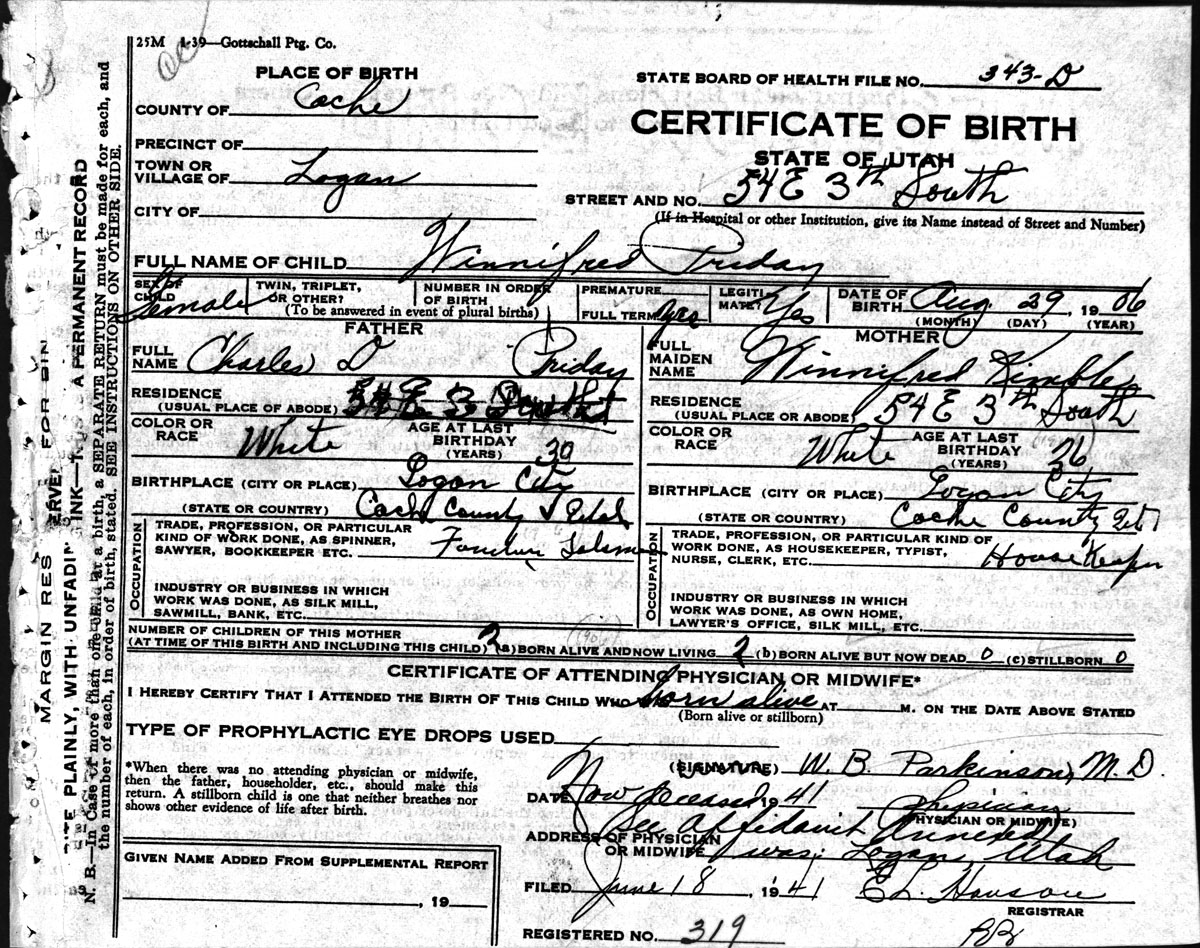 25M 1-39—Gottschall Ptg. Co.
PLACE OF BIRTH
STATE BOARD OF HEALTH FILE NO. 343-D
COUNTY OF Cache
CERTIFICATE OF BIRTH
PRECINCT OF
STATE OF UTAH
TOWN OR VILLAGE OF Logan
STREET AND NO. 54 E 3th South
CITY OF
(If in Hospital or other Institution, give its Name instead of Street and Number)
FULL NAME OF CHILD Winnifred Priday
SEX OF CHILD female
TWIN, TRIPLET, OR OTHER?
NUMBER IN ORDER OF BIRTH
(To be answered in event of plural births)
PREMATURE
FULL TERM yes
LEGITIMATE? Yes
DATE OF BIRTH Aug 29, 1906
(MONTH) (DAY) (YEAR)
FATHER
FULL NAME Charles D Priday
RESIDENCE (USUAL PLACE OF ABODE) 54 E 3
COLOR OR RACE White
AGE AT LAST BIRTHDAY (YEARS) 30
BIRTHPLACE (CITY OR PLACE) Logan City
(STATE OR COUNTRY) Cach County Utah
OCCUPATION
TRADE, PROFESSION, OR PARTICULAR KIND OF WORK DONE, AS SPINNER, SAWYER, BOOKKEEPER ETC.
INDUSTRY OR BUSINESS IN WHICH WORK WAS DONE, AS SILK MILL, SAWMILL, BANK, ETC.
MOTHER
FULL MAIDEN NAME Winnifred Kimbley
RESIDENCE (USUAL PLACE OR ABODE) 54 E 3th South
COLOR OR RACE White
AGE AT LAST BIRTHDAY (YEARS) 26
BIRTHPLACE (CITY OR PLACE) Logan City
(STATE OR COUNTRY) Cache County
OCCUPATION
TRADE, PROFESSION, OR PARTICULAR KIND OF WORK DONE, AS HOUSEKEEPER, TYPIST, NURSE, CLERK, ETC. House Keeper
INDUSTRY OR BUSINESS IN WHICH WORK WAS DONE, AS OWN HOME, LAWYER'S OFFICE, SILK MILL, ETC.
NUMBER OF CHILDREN OF THIS MOTHER
(AT TIME OF THIS BIRTH AND INCLUDING THIS CHILD) 2 (a) BORN ALIVE AND NOW LIVING 2 (b) BORN ALIVE BUT NOW DEAD 0 (c) STILLBORN 0
CERTIFICATE OF ATTENDING PHYSICIAN OR MIDWIFE*
I HEREBY CERTIFY THAT I ATTENDED THE BIRTH OF THIS CHILD WHO born alive AT M. ON THE DATE ABOVE STATED
(Born alive or stillborn)
TYPE OF PROPHYLACTIC EYE DROPS USED
*When there was no attending physician or midwife, then the father, householder, etc., should make this return. A stillborn child is one that neither breathes nor shows other evidence of life after birth.
(SIGNATURE) W. B. Parkinson, M. D.
DATE Now deceased 1941 Physician
(PHYSICIAN OR MIDWIFE)
See Affidavit Annexed
ADDRESS OF PHYSICIAN OR MIDWIFE was: Logan, Utah
GIVEN NAME ADDED FROM SUPPLEMENTAL REPORT
, 19
FILED June 18, 1941
REGISTRAR
REGISTERED NO. 319
MARGIN RES
PLAINLY, WITH UNFADIN INK—
A PERMANENT RECORD
N. B.—In Case of more than one child at a birth, a SEPARATE RETURN must be made for each, and
the number of each, in order of birth, stated. SEE INSTRUCTIONS ON OTHER SIDE.